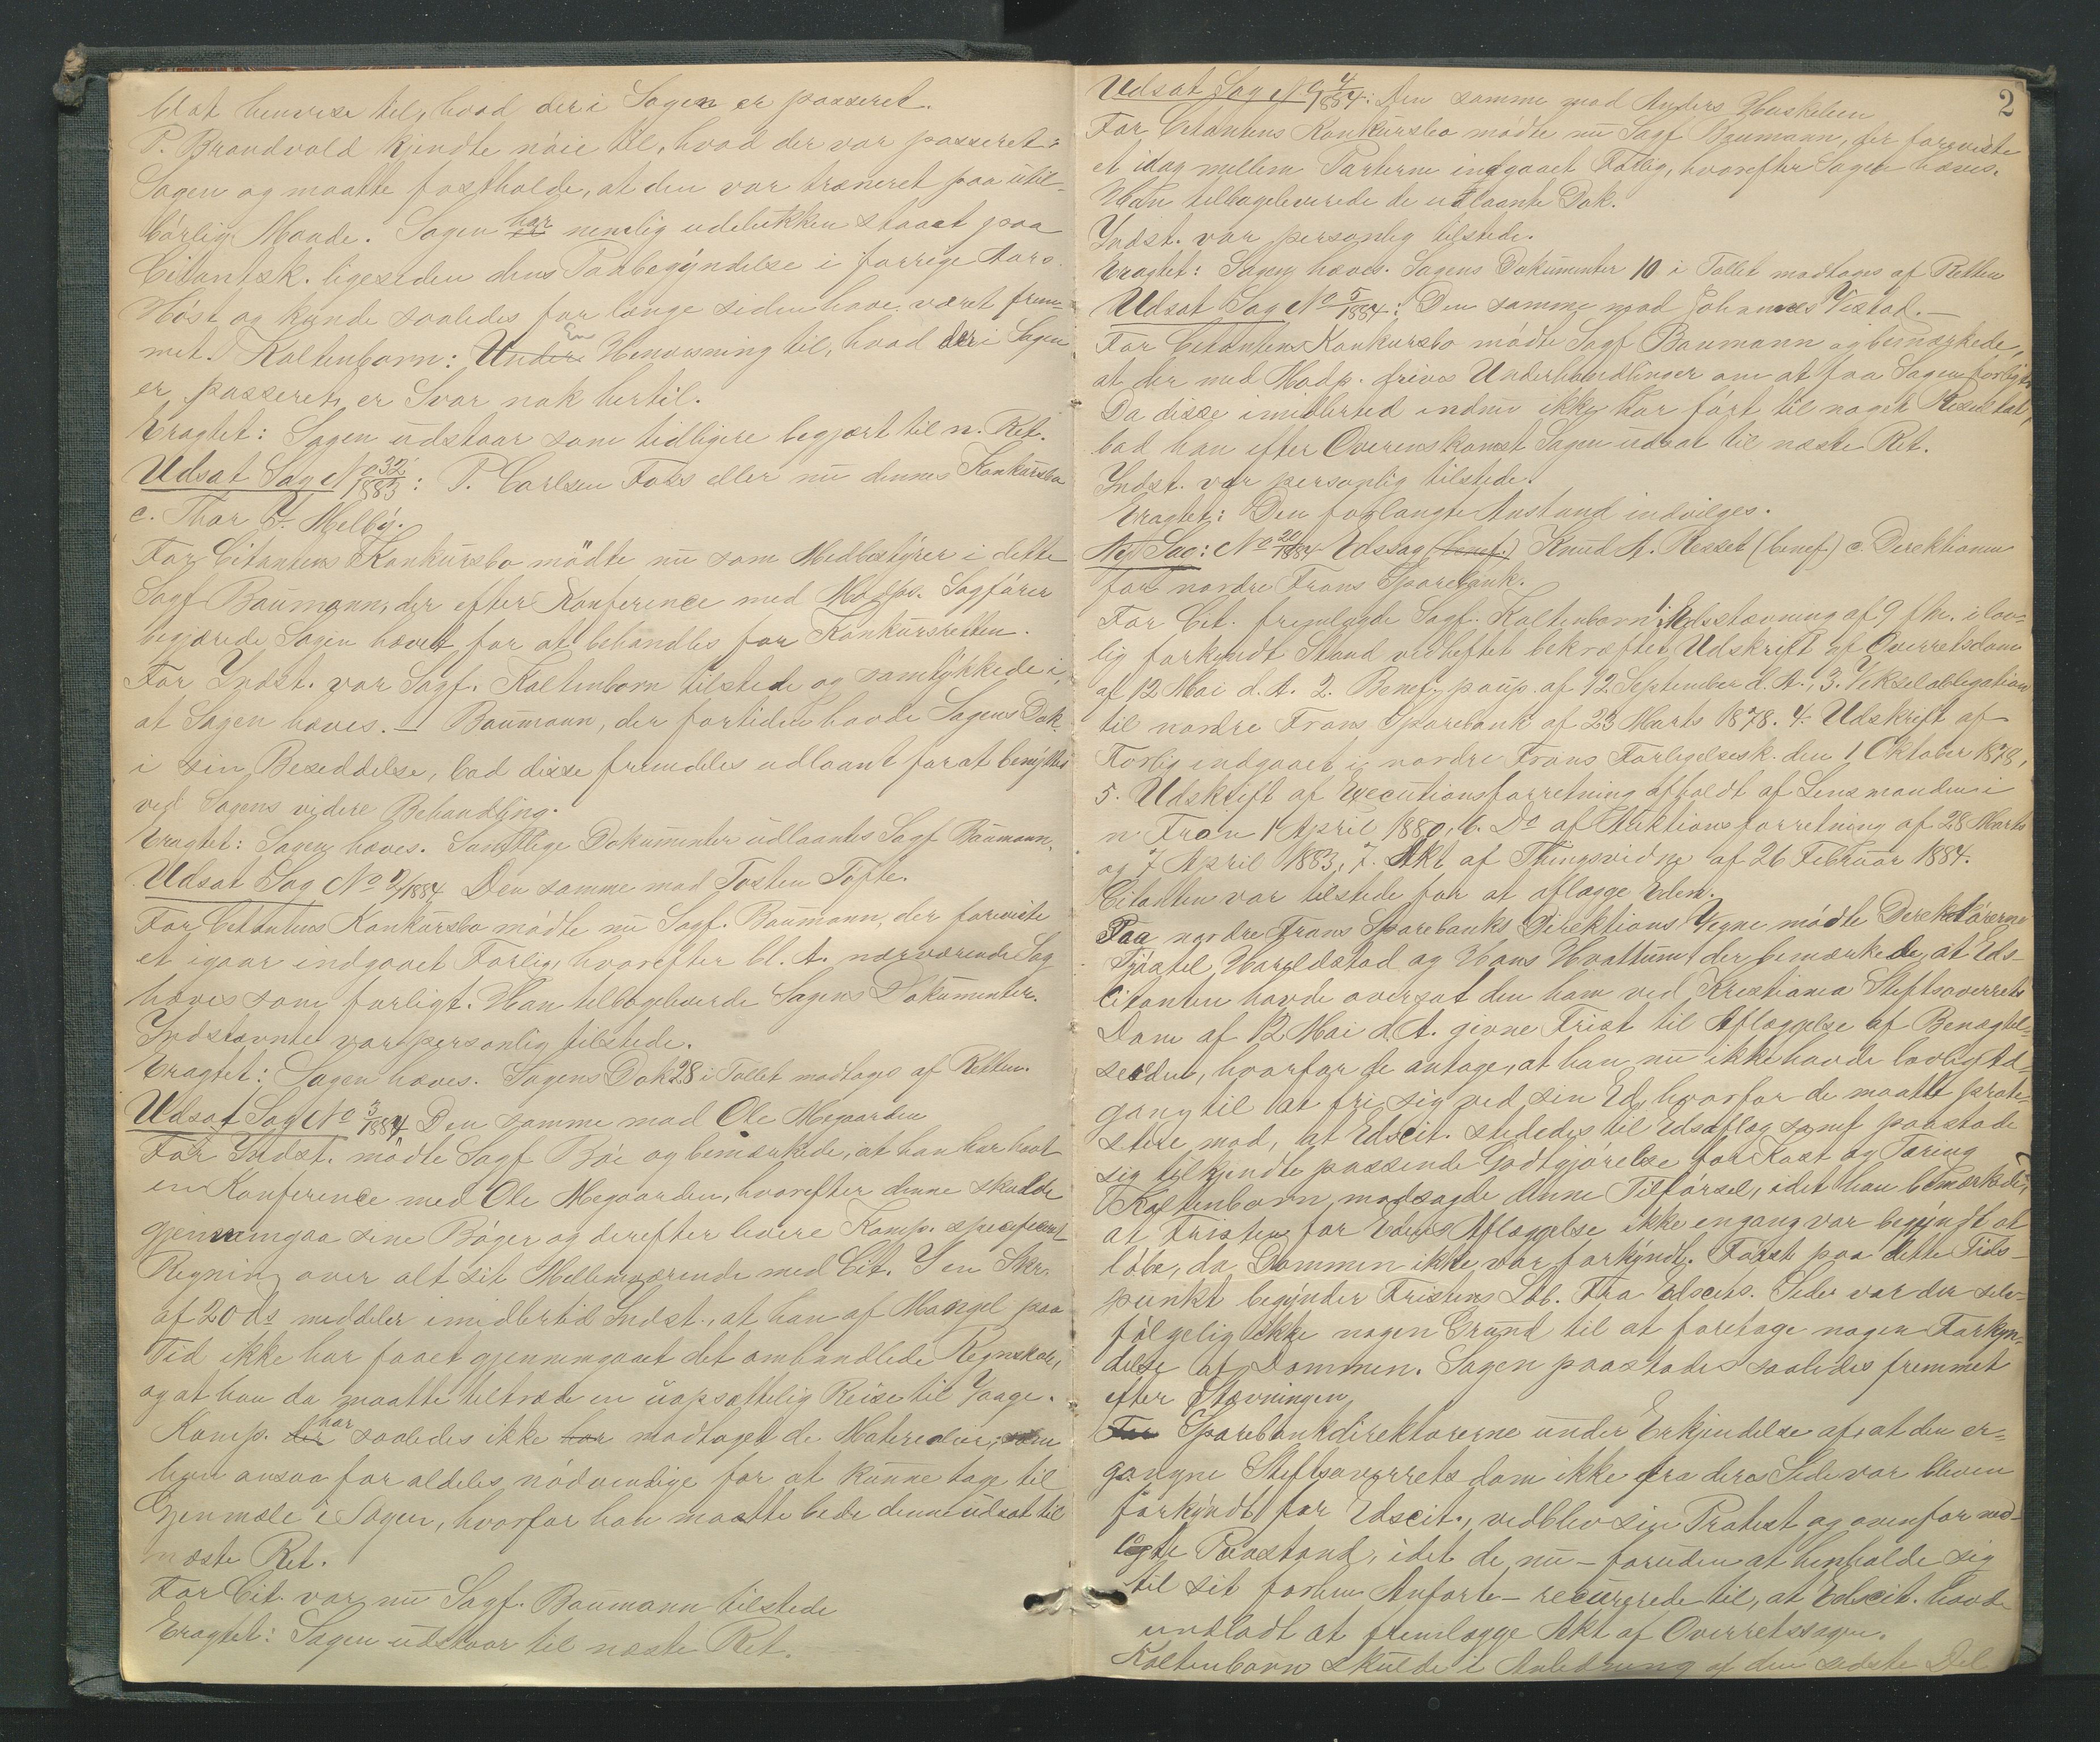 blot henvise til, hvad der i Sagen er passeret.
P. Brandvold kjendte nöie til, hvad der var passeret i
Sagen og maatte fastholde, at den var træneret paa util-
börlig Maade. Sagen har nemlig udelukken staaet paa
Citantsk. ligesiden dens Paabegyndelse i forrige Aars
Höst og kunde saaledes for længe siden have været frem-
met. Kaltenborn: Under En Henvisning til, hvad der i Sagen
er passeret, er Svar nok hertil.
Eragtet: Sagen udstaar som tidligere begjært til n. Ret.
Udsat Sag No 32/1883: P. Carlsen Foss eller nu dennes Konkursbo
c. Thor T. Melby.
For Citantens Konkursbo mödte nu som Medbestyrer i dette
Sagf Baumann, der efter Konference med Modp. Sagförer
begjærede Sagen hævet for at behandles for Konkursretten.
For Indst. var Sagf. Kaltenborn tilstede og samtykkede i,
at Sagen hæves. – Baumann, der fortiden havde Sagens Dok.
i sin Besiddelse, bad disse fremdeles udlaant for at benyttes
ved Sagens videre Behandling.
Eragtet: Sagen hæves. Samtlige Dokumenter udlaantes Sagf Baumann.
Udsat Sag No /1884 Den samme mod Tosten Tofte.
For Citantens Konkursbo mödte nu Sagf. Baumann, der foreviste
et igaar indgaaet Forlig, hvorefter bl. A. nærværende Sag
hæves som forligt. Han tilbageleverede Sagens Dokumenter.
Indstævnte var personlig tilstede.
Eragtet: Sagen hæves. Sagens Dok 28 i Tallet modtages af Retten.
Udsat Sag No 3/1884 Den samme mod Ole Megaarden
For Indst. mödte Sagf Böe og bemærkede, at han har havt
en Konference med Ole Megaarden, hvorefter denne skulde
gjennemgaa sine Böger og derefter levere Komp. specificeret
Regning over alt sit Mellemværende med Cit. I en Skr.
af 20 ds meddeler imidlertid Indst., at han af Mangel paa
Tid ikke har faaet gjennemgaaet det ombandlede Regnskab,
og at han da maatte tiltræde en uopsættelig Reise til Vaage.
Komp. der har saaledes ikke har modtaget de Materialier, som
han ansaa for aldeles nödvendige for at kunne tage til
Gjenmæle i Sagen, hvorfor han maatte bede denne udsat til
næste Ret.
For Cit. var nu Sagf. Baumann tilstede
Eragtet: Sagen udstaar til næste Ret.
2
Udsat Sag No 4/1884: Den samme mod Anders Huskelien
For Citantens Konkursbo mödte nu Sagf Baumann, der foreviste
et idag mellem Parterne indgaaet Forlig, hvorefter Sagen hæves.
Han tilbageleverede de udlaante Dok.
Indst. var personlig tilstede.
Eragtet: Sagen hæves. Sagens Dokumenter 10 i Tallet modtages af Retten
Udsat Sag No 5/1884: Den samme mod Johannes Vistad. –
For Citantens Konkursbo mödte Sagf Baumann og bemærkede,
at der med Modp. drives Underhandlinger om at faa Sagen forligt.
Da disse imidlertid endnu ikke har fört til noget Resultat,
bad han efter Overenskomst Sagen udsat til næste Ret.
Indst. var personlig tilstede.
Eragtet: Den forlangte Anstand indvilges.
Ny Sag: No 20/1884 Edssag (benef.) Knud A. Resset (benef.) c. Direktionen
for nordre Frons Sparebank.
For Cit. fremlagde Sagf. Kaltenborn 1. Edsstævning af 9 f.M. i lov-
lig forkyndt Stand vedheftet bekræftet Udskrift af Overretsdom
af 12 Mai d. A. 2. Benef. paup. af 12 September d. A., 3. Vekselobligation
til nordre Frons Sparebank af 23 Marts 1878. 4. Udskrift af
Forlig indgaaet i nordre Frons Forligelsesk. den 1 Oktober 1878,
5. Udskrift af Executionsforretning afholdt af Lensmanden i
n Fron 1 April 1880, 6. Do af Auktionsforretning af 28 Marts
og 7 April 1883, 7. Akt af Thingsvidne af 26 Februar 1884.
Citanten var tilstede for at aflægge Eden.
Paa nordre Frons Sparebanks Direktions Vegne mödte Direktörerne
Sjöstel, Haroldstad og Hans Hvattum, der bemærkede, at Eds-
citanten havde oversat den ham ved Kristiania Stiftsoverrets
Dom af 12 Mai d. A. givne Frist til Aflæggelse af Benægtel-
seseden, hvorfor de antage, at han nu ikke havde lovlig Ad-
gang til at fri sig ved sin Ed, hvorfor de maatte prote-
stere mod, at Edscit. stededes til Edsaflæg samt paastode
sig tilkjendte passende Godtgjörelse for Kost og Tæring
Kaltenborn modsagde denne Tilförsel, idet han bemærkede,
at Fristen for Edens Aflæggelse ikke engang var begyndt at
löbe, da Dommen ikke var forkyndt. Först paa dette Tids-
punkt begynder Fristens Löb. Fra Edscits. Side var der selv-
fölgelig ikke nogen Grund til at foretage nogen Forkyn-
delse af Dommen. Sagen paastodes saaledes fremmet
efter Stævningen
For Sparebankdirektörerne under Erkjendelse af, at den er-
gangne Stiftsoverrets dom ikke fra deres Side var bleven
forkyndt for Edscit., vedblev sin Protest og ovenfor ned-
lagte Paastand, idet de nu – foruden at henholde sig
til sit forhen Anförte – recurrerede til, at Edscit. havde
undladt at fremlægge Akt af Overretssagen.
Kaltenborn skulde i Anledning af den sidste Del